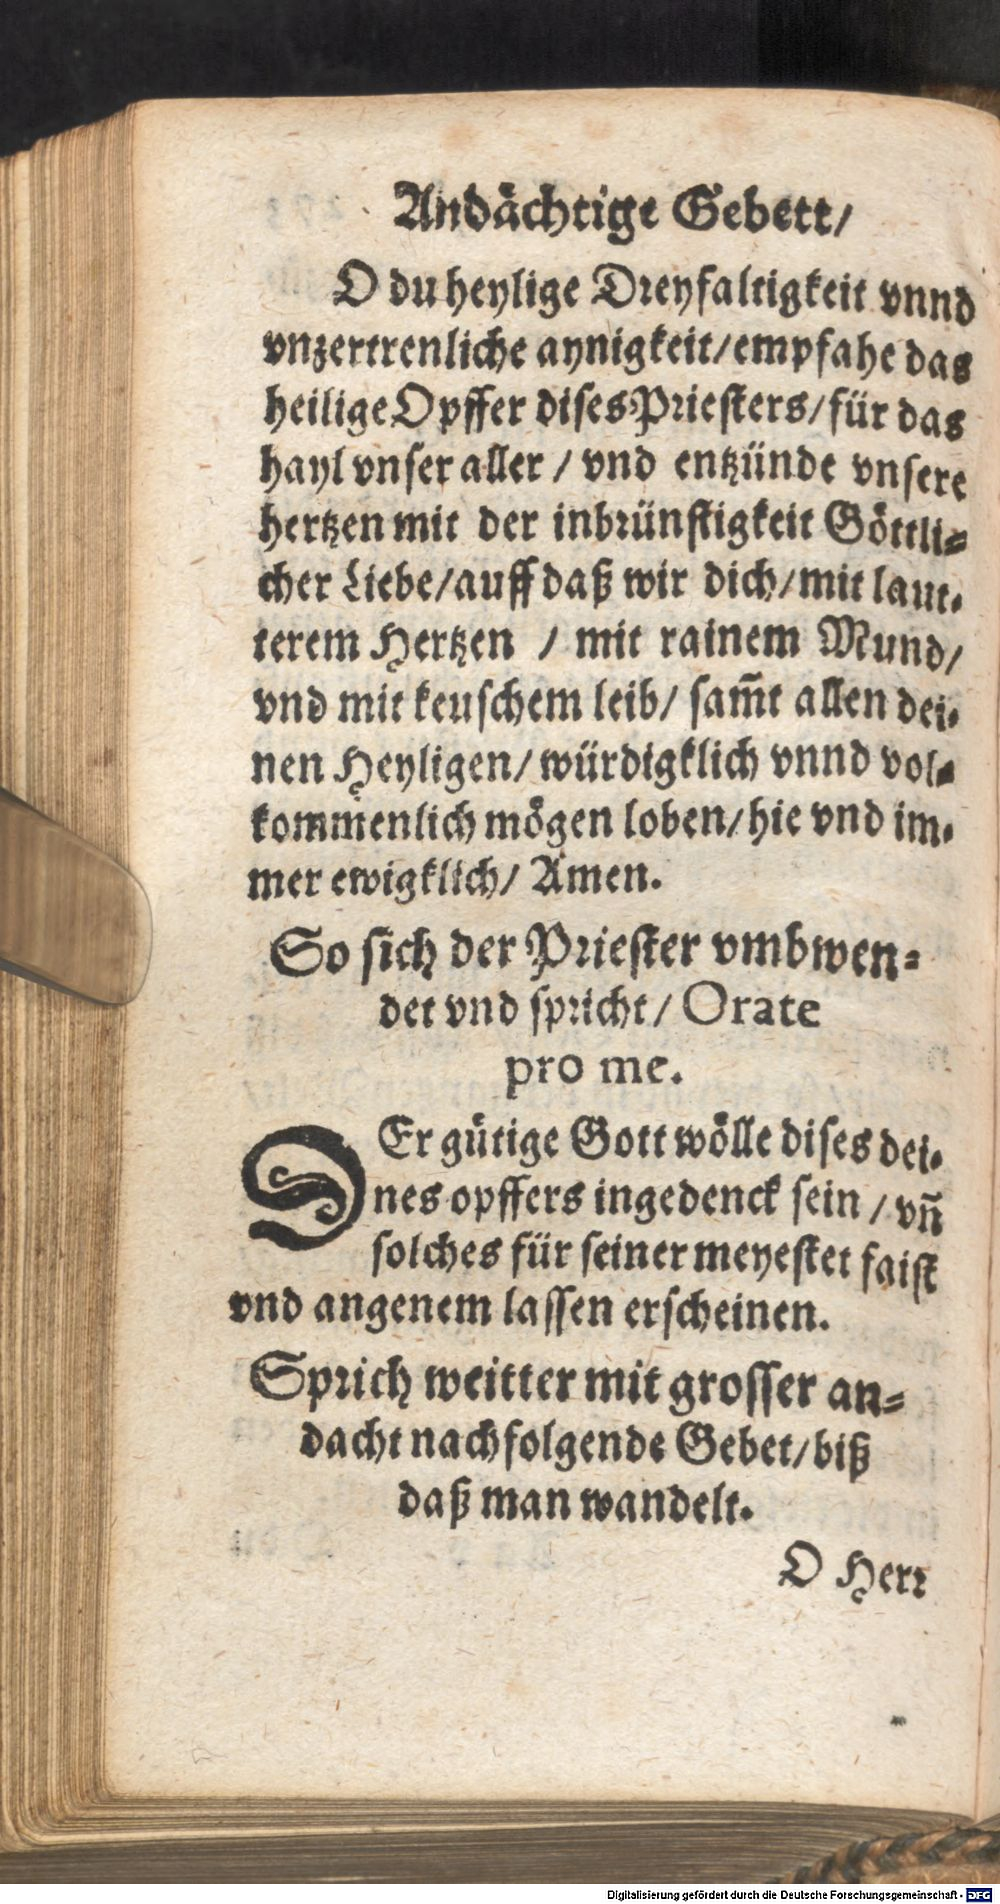 Andächtige Gebett/
O du heylige Dreyfaltigkeit vnnd
vnzertrenliche aynigkeit/empfahe das
heilige Opffer dises Priesters/für das
hayl vnser aller / vnd entzünde vnsere
hertzen mit der inbrünstigkeit Göttli-
cher Liebe/auff daß wir dich/mit laut-
terem Hertzen / mit rainem Mund/
vnd mit keuschem leib/ sam̃t allen dei-
nen Heyligen/würdigklich vnnd vol-
kommenlich mögen loben/hie vnd im-
mer ewigklich/ Amen.
So sich der Priester vmbwen-
det vnd spricht/ Orate
pro me.
DEr gütige Gott wölle dises dei-
nes opffers ingedenck sein / vñ
solches für seiner meyestet faist
vnd angenem lassen erscheinen.
Sprich weitter mit grosser an-
dacht nachfolgende Gebet/biß
daß man wandelt.
O Herr
Digitalisierung gefördert durch die Deutsche Forschungsgemeinschaft - DFG